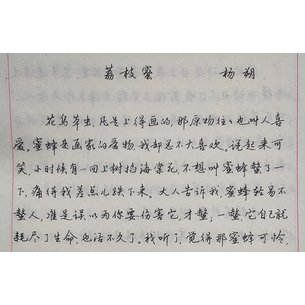 荔枝蜜 杨朔
花鸟草虫,凡是上得画的,那原物往往也叫人喜
爱。蜜蜂是画家的爱物,我却总不大喜欢。说起来可
笑,小时候有一回上树掐海棠花,不想叫蜜蜂螫了一
下,痛得我差点儿跌下来。大人告诉我,蜜蜂轻易不
螫人,准是误以为你要伤害它,才螫,一螫,它自己就
耗尽了生命,也活不久了。我听了,觉得那蜜蜂可怜,